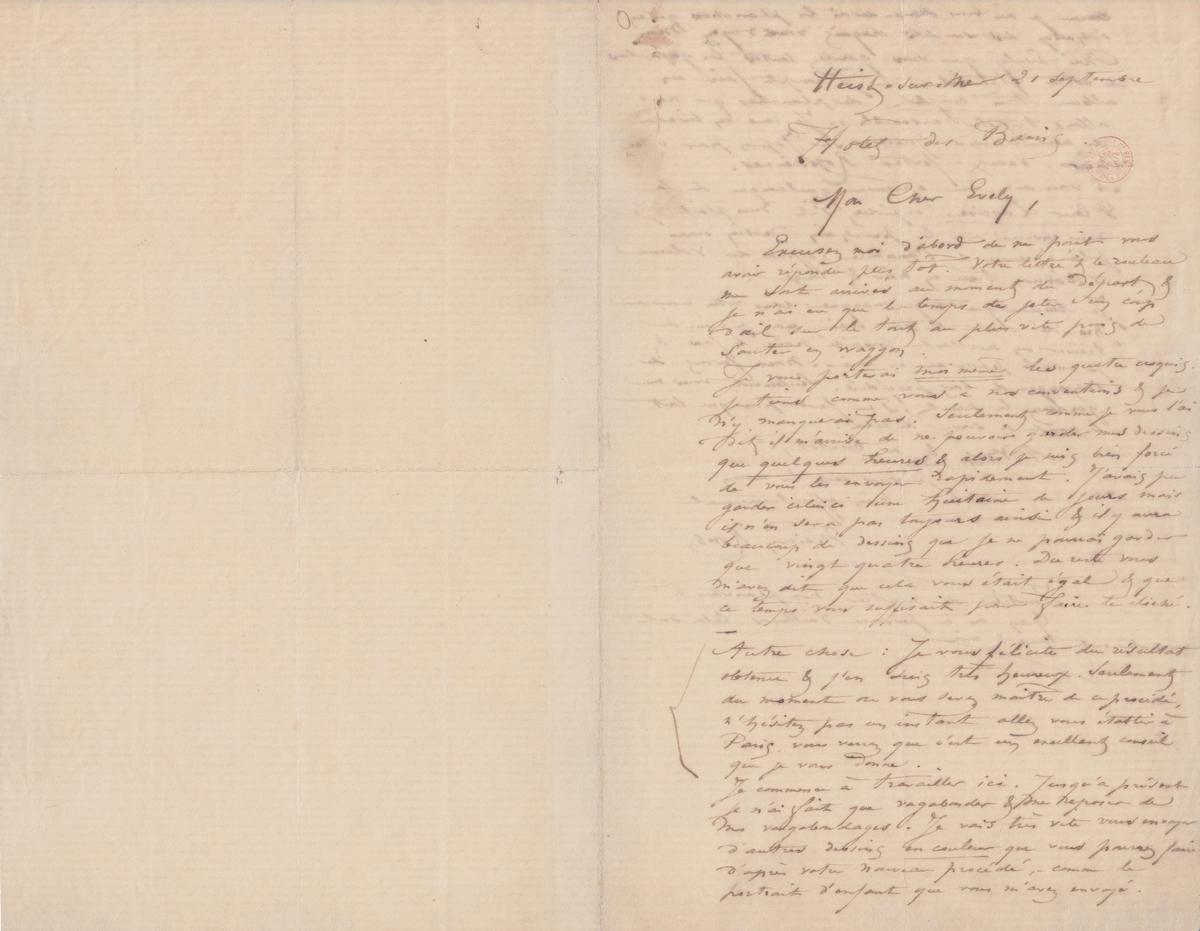 Heist-sur-Mer 21 Septembre
Hotel des Bains.
Mon Cher Evely,
Excusez moi d'abord de ne point vous
avoir répondu plus tôt. Votre lettre & le rouleau
me sont arrivés au moment du Départ &
je n'ai eu que le temps de jeter un coup
d'œil sur le tout au plus vite puis de
sauter en waggon.
Je vous porterai moi même les quatre croquis.
Je tiens comme vous à nos conventions & je
n'y manquerai pas. Seulement comme je vous l'ai
Dit il m'arrive de ne pouvoir garder mes dessins
que quelques heures & alors je suis bien forcé
de vous les envoyer rapidement. J'avais pu
garder celui ci une huitaine de jours mais
il n'en sera pas toujours ainsi & il y aura
beaucoup de dessins que je ne pourrai garder
que vingt quatre heures. Du reste vous
m'avez dit que cela vous était égal & que
ce temps vous suffisait pour faire le cliché.
Autre chose : Je vous félicite du résultat
obtenu & j'en suis très heureux. Seulement
du moment où vous serez maître de ce procédé,
n'hésitez pas un instant allez vous établir à
Paris, vous verrez que c'est un excellent conseil
que je vous Donne.
Je commence à travailler ici. Jusqu'à présent
je n'ai fait que vagabonder & me reposer de
mes vagabondages. Je vais très vite vous envoyer
d'autres dessins en couleur que vous pourrez faire
d'après votre nouveau procédé, - comme le
portrait d'enfant que vous m'avez envoyé.